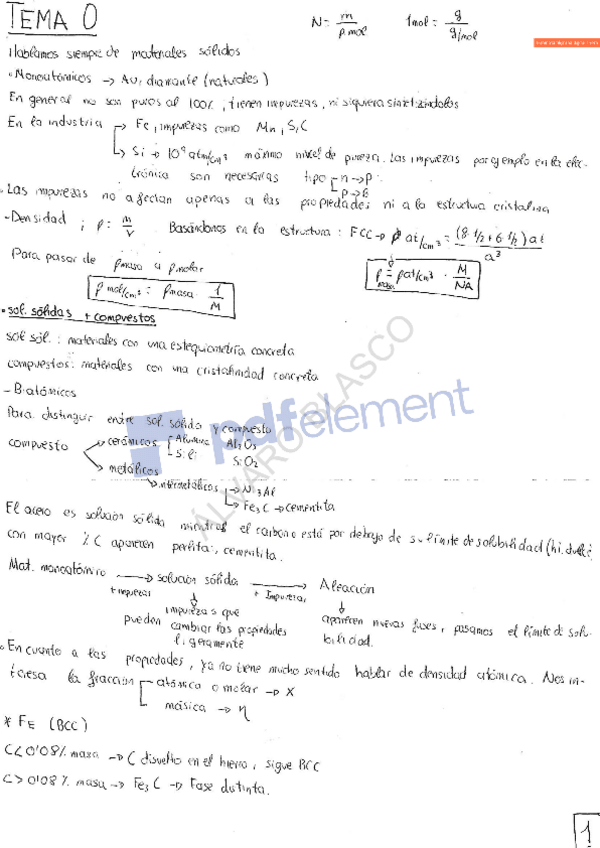 TEMA 0
N = m / p.mol    1mol = g / g/mol
Hablamos siempre de materiales sólidos
• Monoatómicos → Au, diamante (naturales)
En general no son puros al 100%, tienen impurezas, ni siquiera sintetizándolos
En la industria → Fe, impurezas como Mn, S, C
→ Si → 10⁹ at/cm³ máximo nivel de pureza. Las impurezas por ejemplo en la elec-
trónica son necesarias tipo n → P
p → B
• Las impurezas no afectan apenas a las propiedades ni a la estructura cristalina
- Densidad ; ρ = m/V    Basándonos en la estructura : FCC → ρ at/cm³ = (8·1/8 + 6·1/2) at / a³
Para pasar de ρmasa a ρmolar
ρ mol/cm³ = ρmasa · 1/M
ρ masa = ρ at/cm³ · M/NA
• sol. sólidas + compuestos
sol sól. : materiales con una estequiometría concreta
compuestos : materiales con una cristalinidad concreta
- Biatómicos
Para distinguir entre sol. sólida y compuesto
compuesto → cerámicos Alúmina Al₂O₃
Sili SiO₂
→ metálicos
→ intermetálicos → Ni₃Al
→ Fe₃C → cementita
El acero es solución sólida mientras el carbono está por debajo de su límite de solubilidad (hi. dulce),
con mayor % C aparecen perlita, cementita.
Mat. monoatómico → solución sólida → Aleación
+ impurezas    + Impurezas
impurezas que pueden cambiar las propiedades ligeramente
aparecen nuevas fases, pasamos el límite de solu-
bilidad.
• En cuanto a las propiedades, ya no tiene mucho sentido hablar de densidad atómica. Nos in-
teresa la fracción atómica o molar → X
másica → η
* FE (BCC)
C < 0'08% masa → C disuelto en el hierro, sigue BCC
C > 0'08% masa → Fe₃C → Fase distinta.
1
ÁLVARO BLASCO
pdfelement